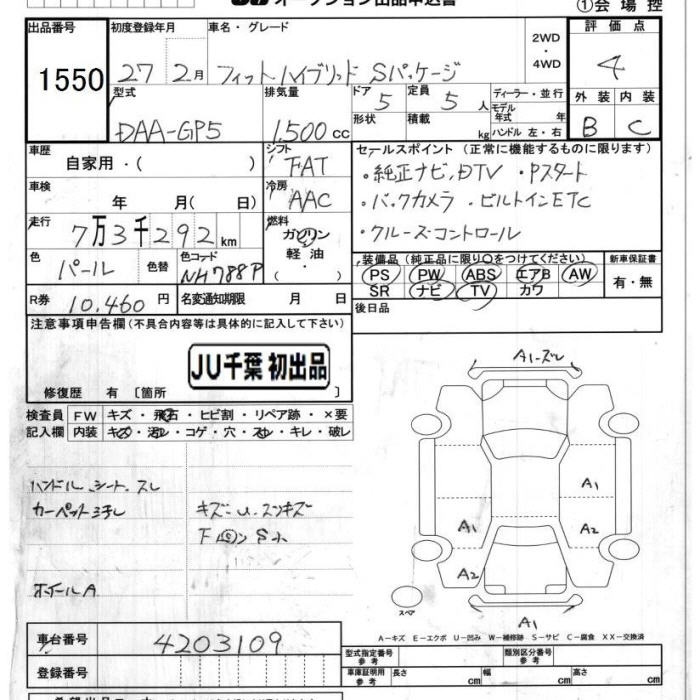 オークション出品申込書
①会場控
出品番号 初度登録年月 車名・グレード 2WD・4WD 評価点
1550 27 2月 フィットハイブリッド Sパッケージ 4
型式 排気量 ドア 5 定員 5人 ディーラー・並行 外装 内装
DAA-GP5 1,500cc 形状 積載 kg モデル年式 年 ハンドル 左・右 B C
車歴 自家用・( ) シフト FAT セールスポイント (正常に機能するものに限ります)
車検 年 月( 日) 冷房 AAC
・純正ナビ、DTV ・Pスタート
・バックカメラ ・ビルトインETC
・クルーズコントロール
走行 7万3千292km 燃料 ガソリン 軽油 ・( )
色 パール 色替 色コード NH788P
装備品 (純正品に限り○をつけてください) 新車保証書
PS PW ABS エアB AW 有・無
SR ナビ TV カワ
R券 10,460円 名変通知期限 月 日
後日品
注意事項申告欄 (不具合内容等は具体的に記入して下さい)
JU千葉 初出品
修復歴 有 [箇所 ]
検査員 FW キズ・飛石・ヒビ割・リペア跡・×要
記入欄 内装 キズ・汚レ・コゲ・穴・スレ・キレ・破レ
ハンドル、シート、スレ
カーペットヨゴレ
キズ・U・スリキズ
ホイールA
A1・スレ
A1
A1
A2
A2
A1
スペア
A-キズ E-エクボ U-凹み W-補修跡 S-サビ C-腐食 XX-交換済
車台番号 4203109
登録番号
型式指定番号 参考 類別区分番号 参考
車庫証明用 参考 長さ cm 幅 cm 高さ cm